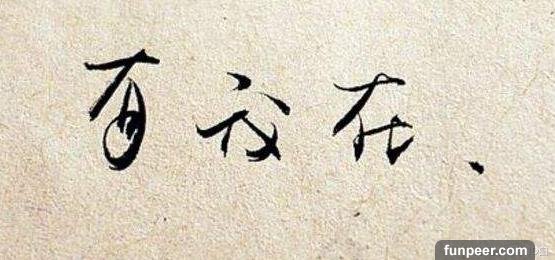 有我在、
funpeer.com